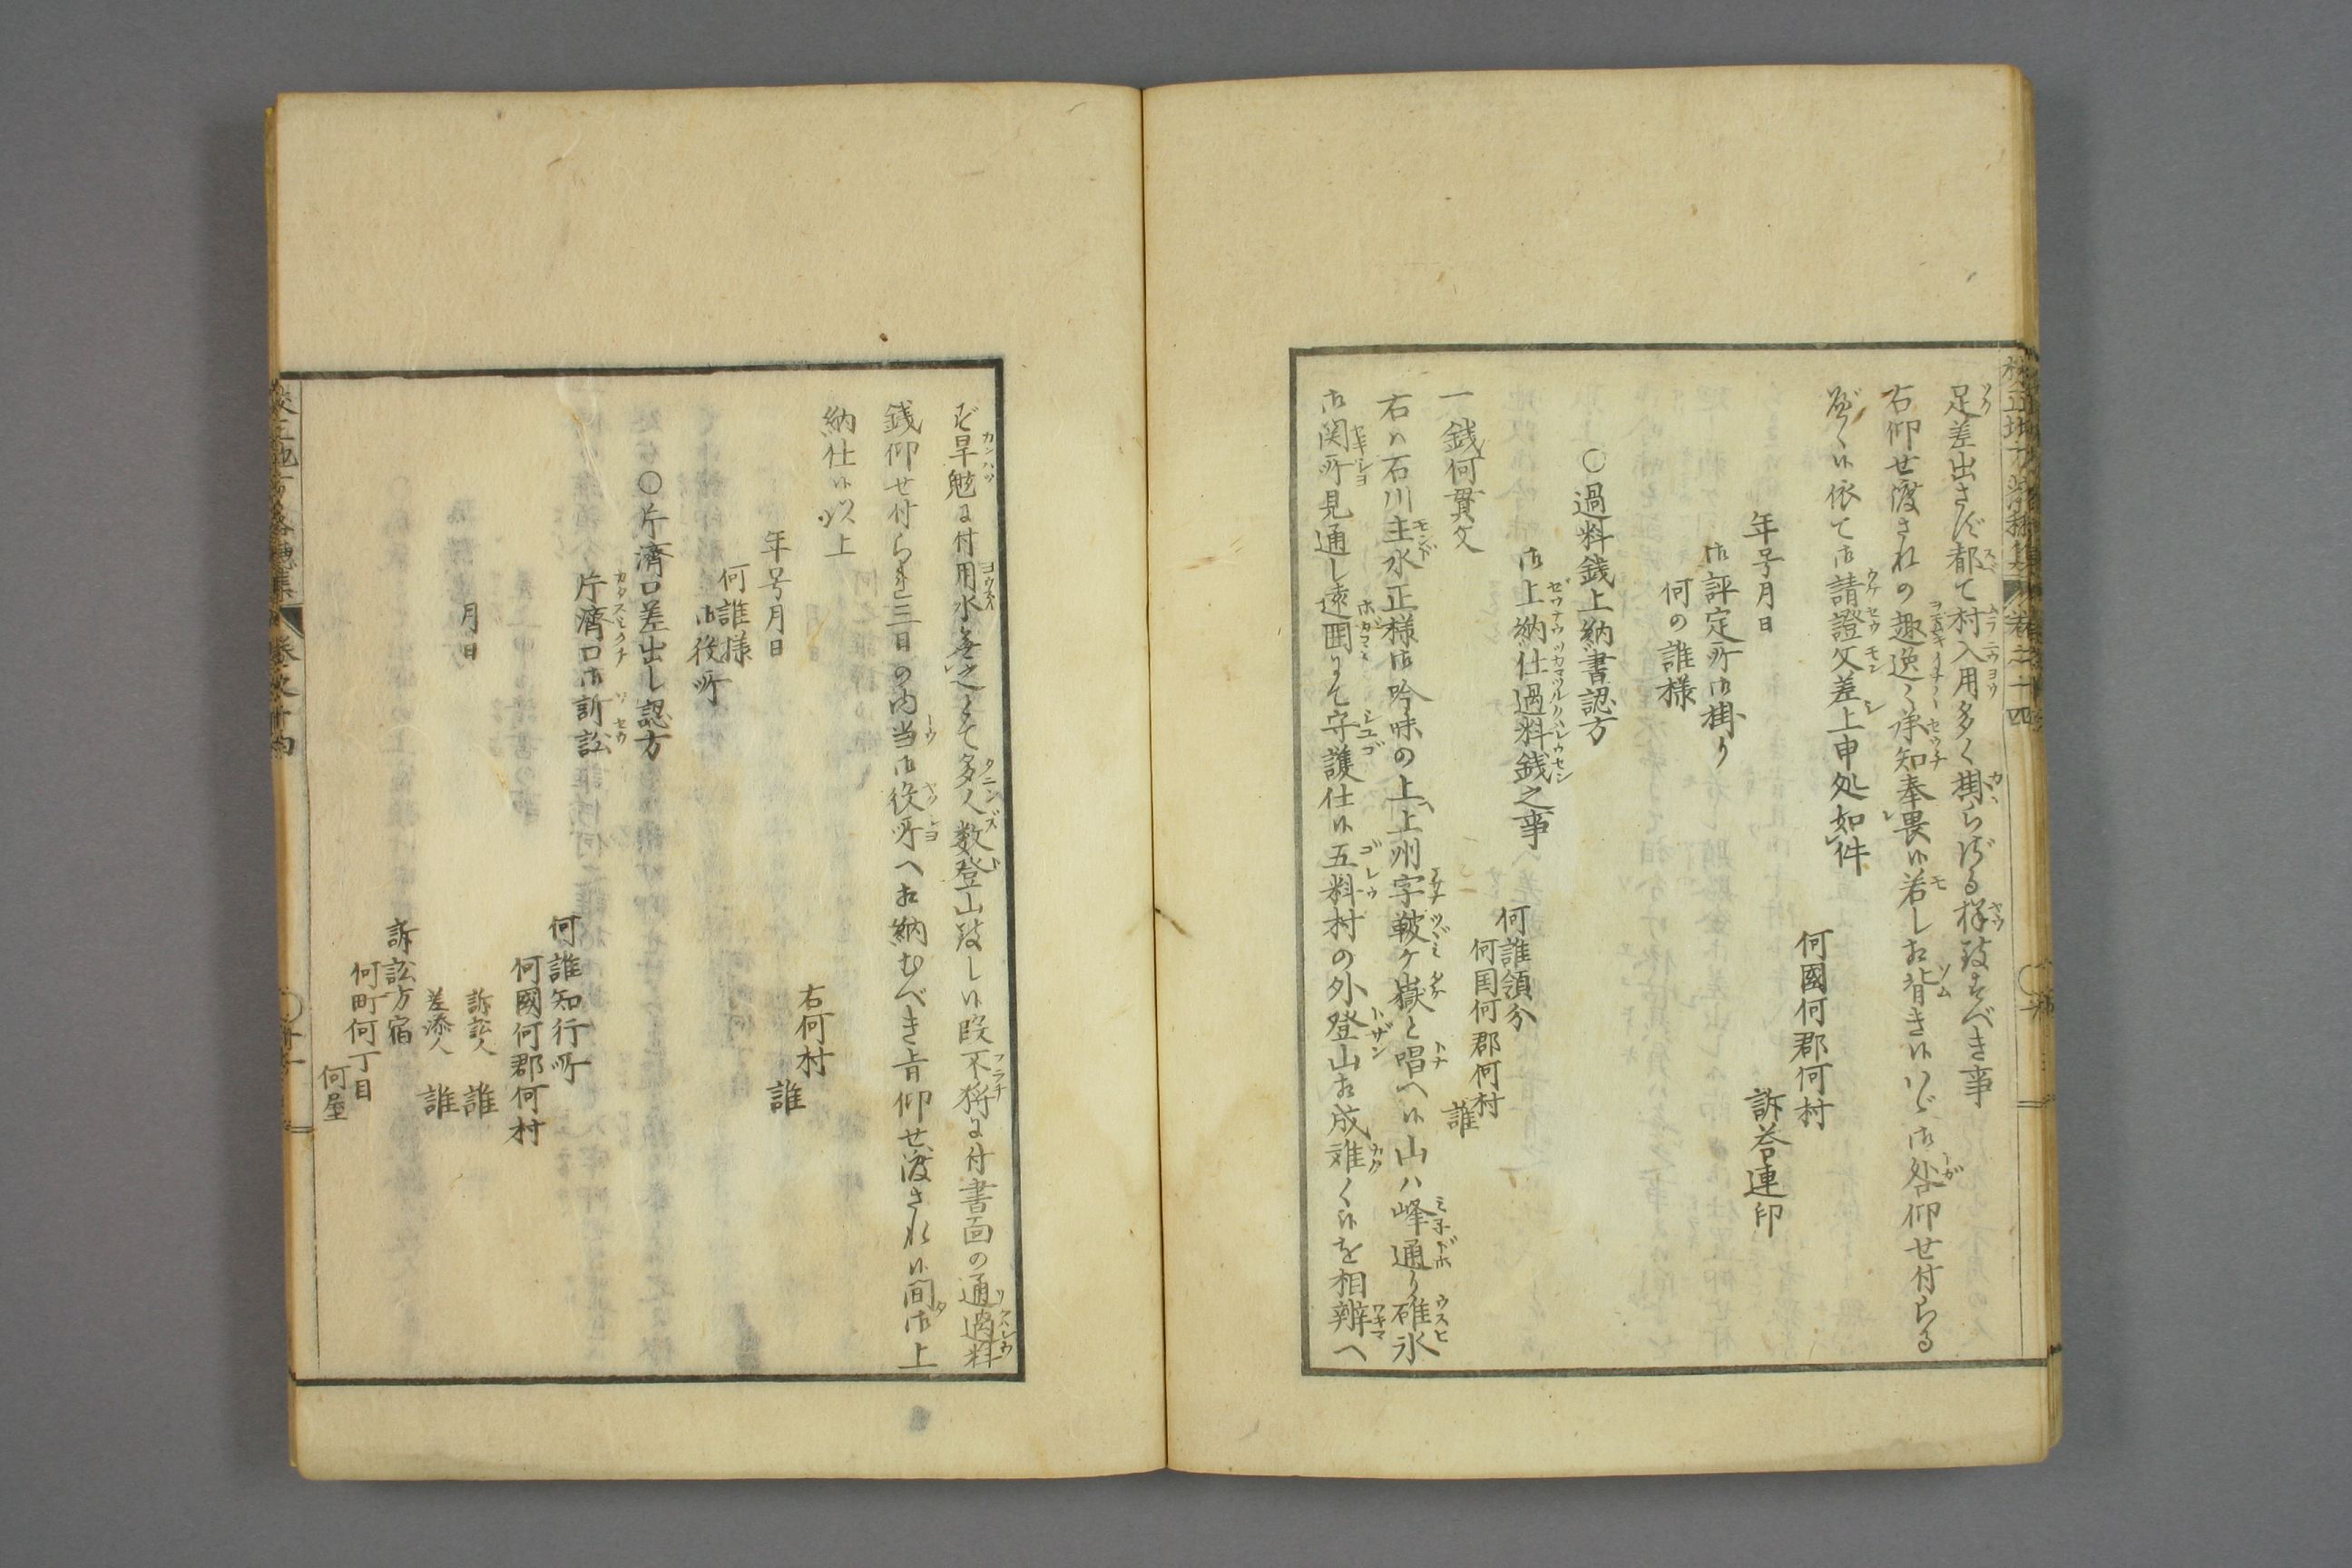 足差出さず都て村入用多く掛らざる様致すべき事
右仰せ渡されの趣逸々承知奉畏候若し相背き候ハゞ御咎仰せ付らる
べく候依て御請證文差上申処如件
何國何郡何村
訴答連印
年号月日
御評定所御掛り
何の誰様
〇過料銭上納書認方
御上納仕過料銭之事
何誰領分
何国何郡何村
誰
一銭何貫文
右ハ石川主水正様御吟味の上上州字鞁ケ嶽と唱へ候山ハ峰通り碓氷
御関所見通し遠囲にて守護仕候五料村の外登山相成難く候を相辨へ
ず旱魃に付用水無之とて多人数登山致し候段不埒に付書面の通過料
銭仰せ付られ三日の内当御役所へ相納むべき旨仰せ渡されれ候間御上
納仕候以上
右何村
誰
年号月日
何誰様
御役所
〇片濟口差出し認方
片濟口御訴訟
何誰知行所
何國何郡何村
訴訟人 誰
月日
差添人 誰
訴訟方宿
何町何丁目
何屋